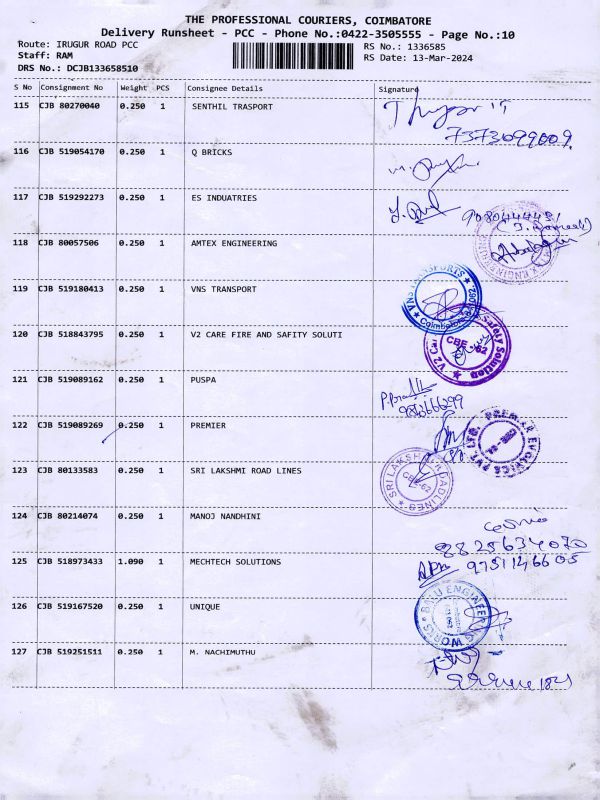 THE PROFESSIONAL COURIERS, COIMBATORE
Delivery Runsheet - PCC - Phone No.:0422-3505555 - Page No.:10
Route: IRUGUR ROAD PCC RS No.: 1336585
Staff: RAM RS Date: 13-Mar-2024
DRS No.: DCJB133658510
S No Consignment No Weight PCS Consignee Details Signature
115 CJB 80270040 0.250 1 SENTHIL TRASPORT
7373099009
116 CJB 519054170 0.250 1 Q BRICKS
117 CJB 519292273 0.250 1 ES INDUATRIES
118 CJB 80057506 0.250 1 AMTEX ENGINEERING
119 CJB 519180413 0.250 1 VNS TRANSPORT
VNS TRANSPORTS
Coimbatore
120 CJB 518843795 0.250 1 V2 CARE FIRE AND SAFITY SOLUTI
Safety Solution
CBE -62
121 CJB 519089162 0.250 1 PUSPA
122 CJB 519089269 0.250 1 PREMIER
123 CJB 80133583 0.250 1 SRI LAKSHMI ROAD LINES
SRI LAKSHMI ROADLINES
124 CJB 80214074 0.250 1 MANOJ NANDHINI
9825634070
125 CJB 518973433 1.090 1 MECHTECH SOLUTIONS
9751146605
126 CJB 519167520 0.250 1 UNIQUE
WORKS
127 CJB 519251511 0.250 1 M. NACHIMUTHU